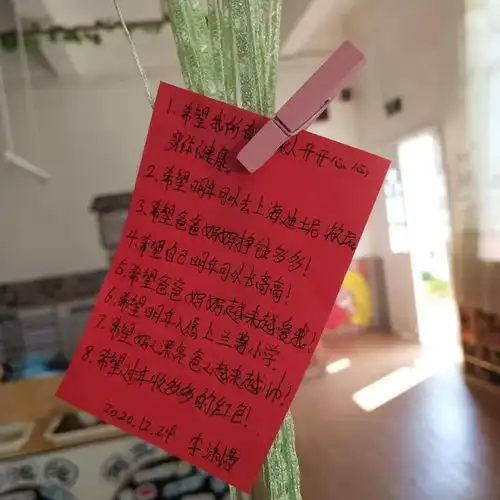 1. 希望我所 人开开心心
身体健康
2. 希望明年可以去上海迪士尼游玩
3. 希望爸爸妈妈挣钱多多!
4. 希望自己明年可以长高高!
5. 希望爸爸妈妈越来越爱我!
6. 希望明年入 上兰 小学.
7. 希望妈 漂亮爸 越来越帅!
8. 希望过年收多多的红包!
2020.12.24 李